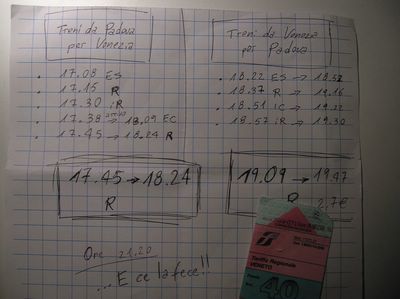 Treni da Padova
per Venezia
17.08 ES
17.15 R
17.30 iR
17.38 → 18.09 EC
17.45 → 18.24 R
17.45 → 18.24
R
Ore 21.20
... E ce la fece!!
Treni da Venezia
per Padova
18.22 ES → 18.52
18.37 R → 19.16
18.51 IC → 19.22
18.57 iR → 19.30
19.09 → 19.47
R
2,7€
Tariffa Regionale
VENETO
40